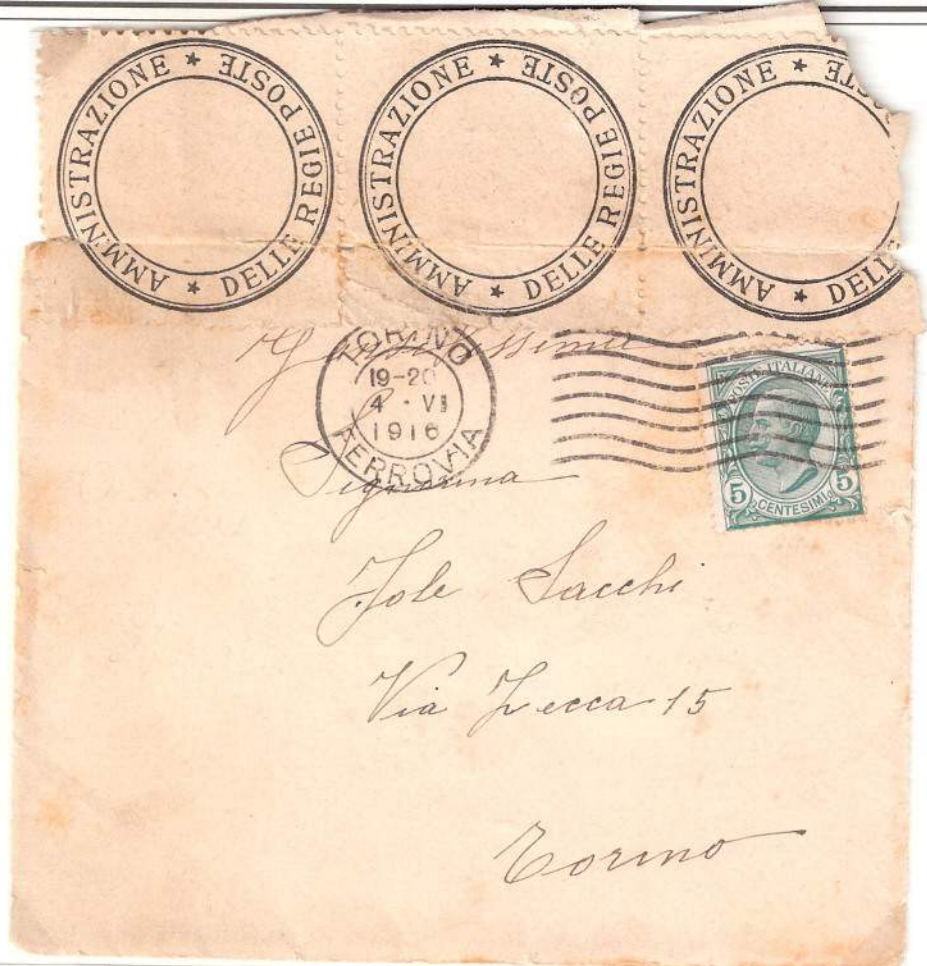 AMMINISTRAZIONE * DELLE REGIE POSTE *
AMMINISTRAZIONE * DELLE REGIE POSTE *
AMMINISTRAZIONE * DELL STE *
TORINO
19-20
4 · VI
1916
FERROVIA
POSTE ITALIANE
5 CENTESIMI 5
Signorina
Jole Sacchi
Via Zecca 15
Torino